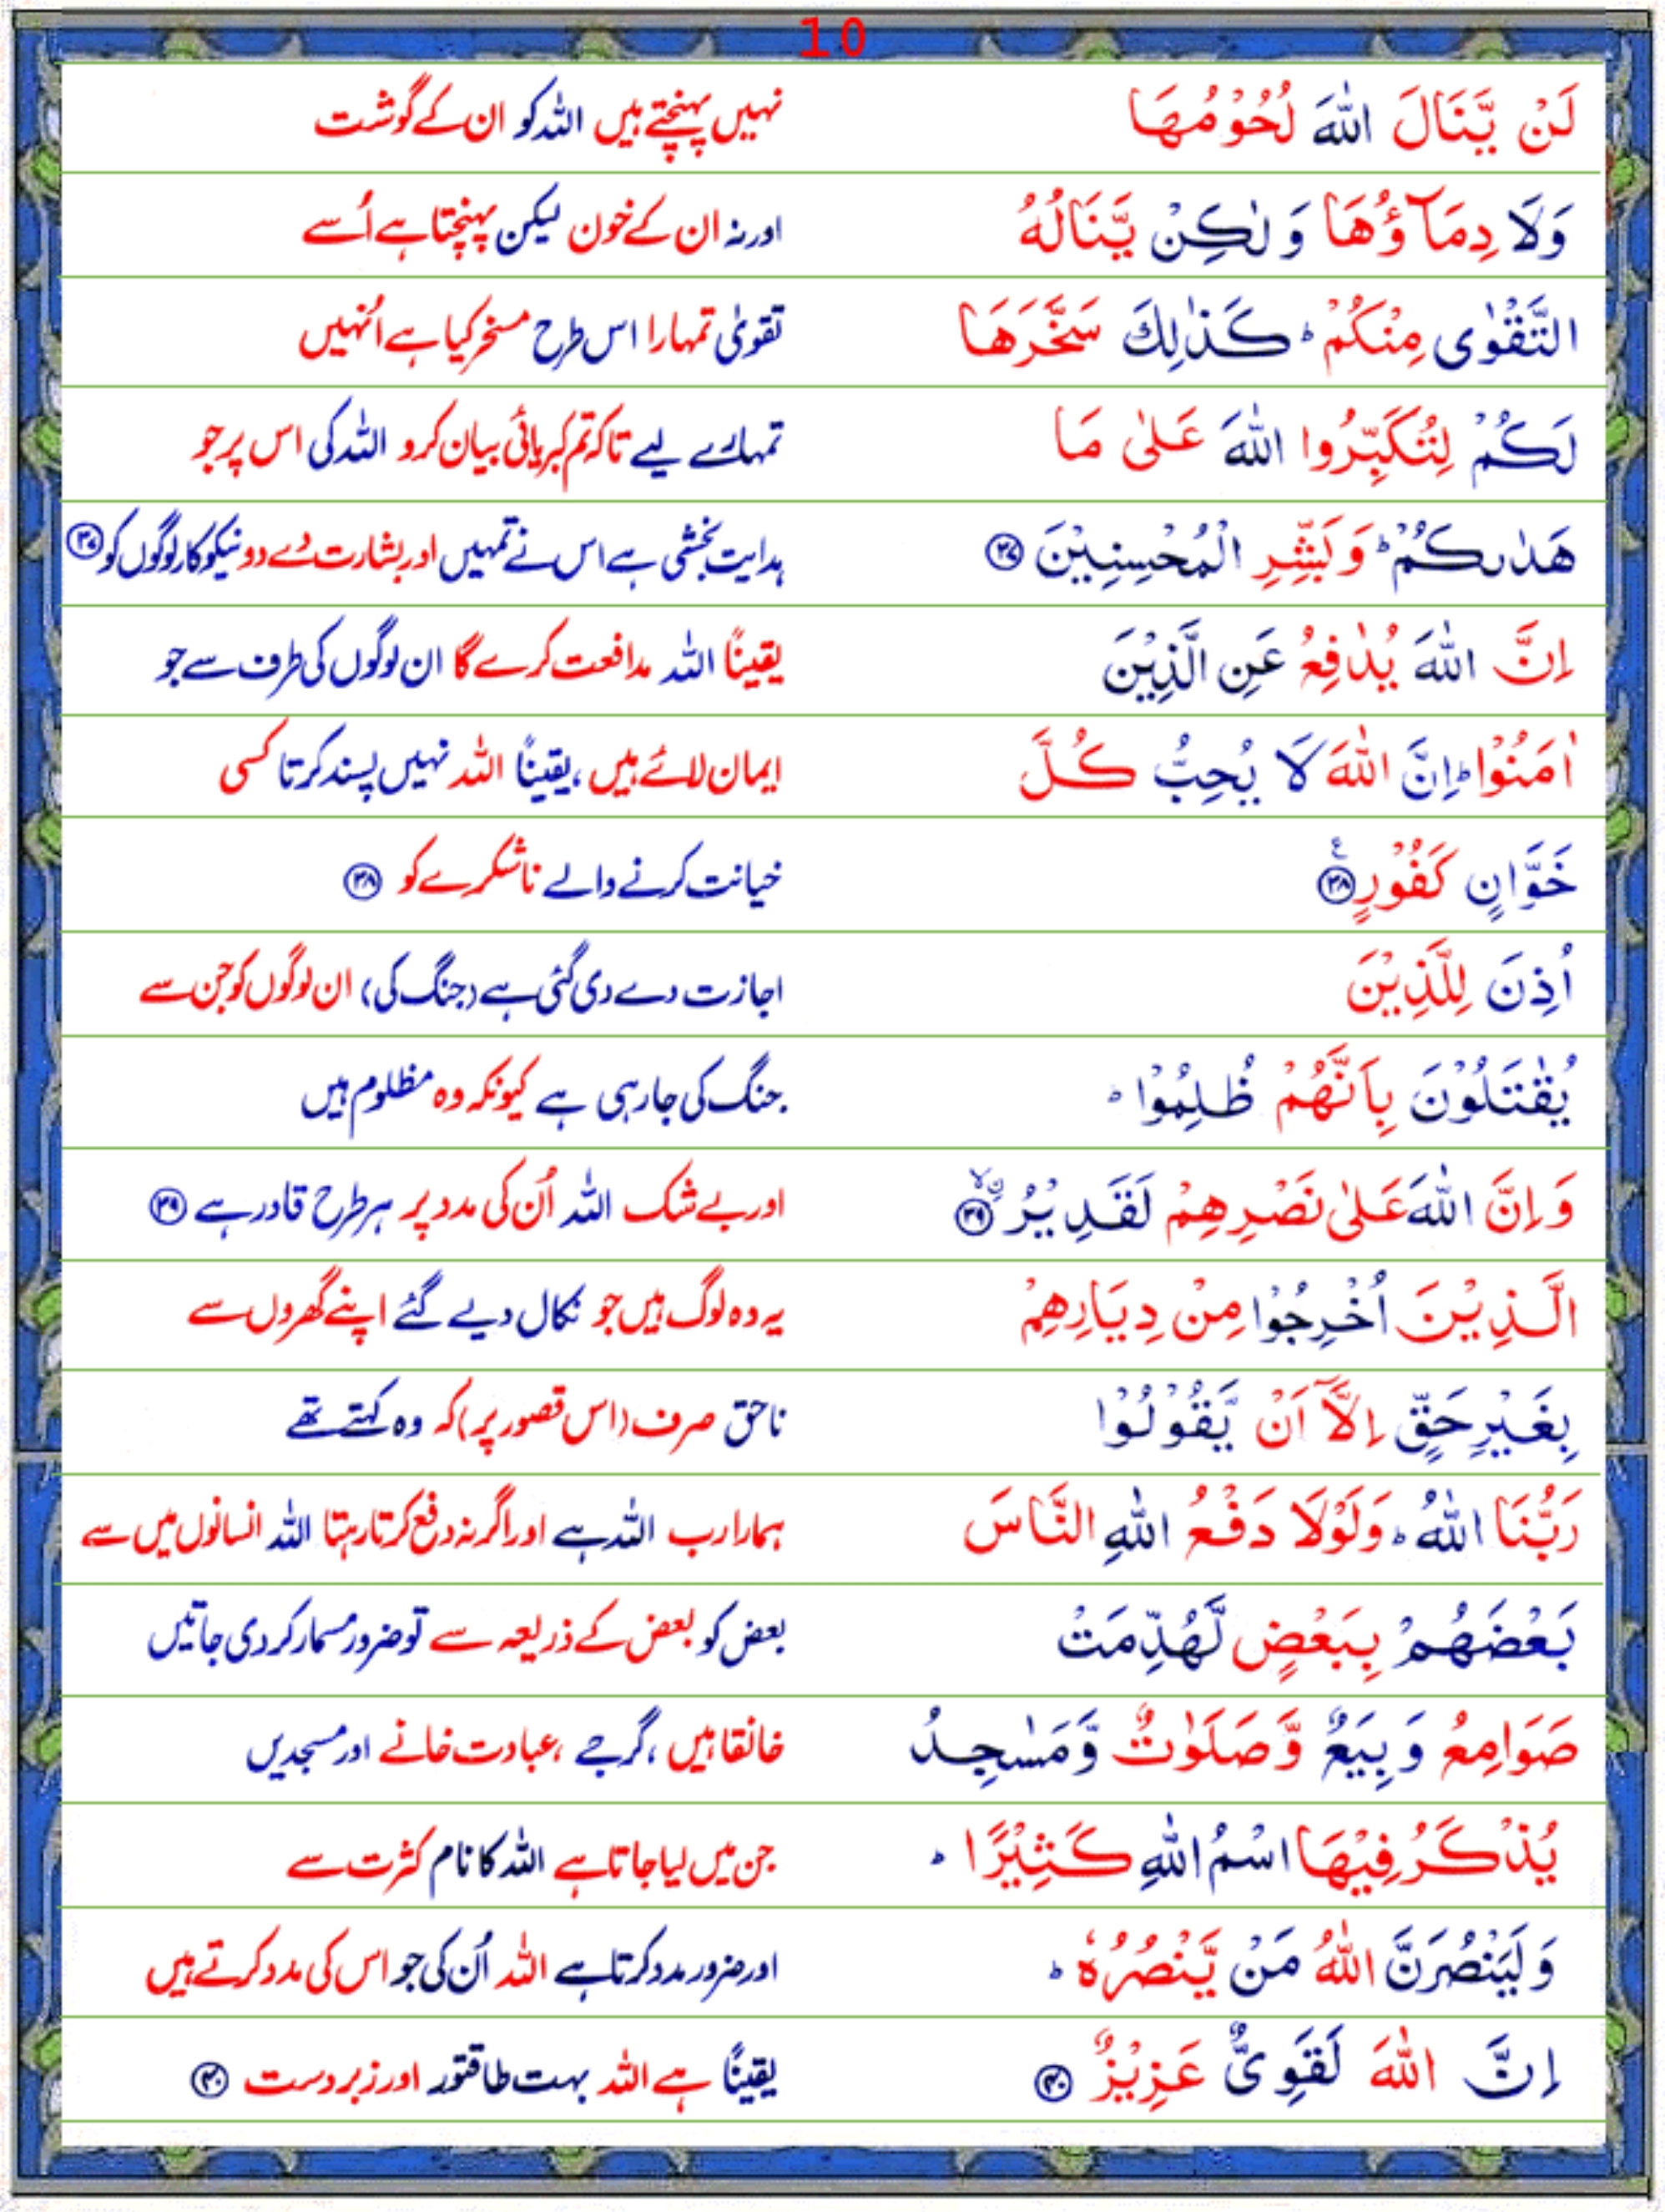 10
لَنْ يَّنَالَ اللّٰهَ لُحُوْمُهَا نہیں پہنچتے ہیں اللہ کو ان کے گوشت
وَلَا دِمَآؤُهَا وَ لٰكِنْ يَّنَالُهُ اور نہ ان کے خون لیکن پہنچتا ہے اُسے
التَّقْوٰى مِنْكُمْ ؕ كَذٰلِكَ سَخَّرَهَا تقویٰ تمہارا اس طرح مسخر کیا ہے اُنہیں
لَكُمْ لِتُكَبِّرُوا اللّٰهَ عَلٰى مَا تمہارے لیے تاکہ تم کبریائی بیان کرو اللہ کی اس پر جو
هَدٰىكُمْ ؕ وَبَشِّرِ الْمُحْسِنِيْنَ ۳۷ ہدایت بخشی ہے اس نے تمہیں اور بشارت دے دو نیکوکار لوگوں کو ۳۷
اِنَّ اللّٰهَ يُدٰفِعُ عَنِ الَّذِيْنَ یقیناً اللہ مدافعت کرے گا ان لوگوں کی طرف سے جو
اٰمَنُوْا ؕ اِنَّ اللّٰهَ لَا يُحِبُّ كُلَّ ایمان لائے ہیں، یقیناً اللہ نہیں پسند کرتا کسی
خَوَّانٍ كَفُوْرٍ ۳۸ ع خیانت کرنے والے ناشکرے کو ۳۸
اُذِنَ لِلَّذِيْنَ اجازت دے دی گئی ہے (جنگ کی) ان لوگوں کو جن سے
يُقٰتَلُوْنَ بِاَنَّهُمْ ظُلِمُوْا ؕ جنگ کی جارہی ہے کیونکہ وہ مظلوم ہیں
وَ اِنَّ اللّٰهَ عَلٰى نَصْرِهِمْ لَقَدِيْرُ ۨۙ ۳۹ اور بے شک اللہ اُن کی مدد پر ہر طرح قادر ہے ۳۹
الَّذِيْنَ اُخْرِجُوْا مِنْ دِيَارِهِمْ یہ وہ لوگ ہیں جو نکال دیے گئے اپنے گھروں سے
بِغَيْرِ حَقٍّ اِلَّاۤ اَنْ يَّقُوْلُوْا ناحق صرف (اس قصور پر) کہ وہ کہتے تھے
رَبُّنَا اللّٰهُ ؕ وَلَوْلَا دَفْعُ اللّٰهِ النَّاسَ ہمارا رب اللہ ہے اور اگر نہ دفع کرتا رہتا اللہ انسانوں میں سے
بَعْضَهُمْ بِبَعْضٍ لَّهُدِّمَتْ بعض کو بعض کے ذریعہ سے تو ضرور مسمار کر دی جاتیں
صَوَامِعُ وَ بِيَعٌ وَّ صَلَوٰتٌ وَّ مَسٰجِدُ خانقاہیں، گرجے، عبادت خانے اور مسجدیں
يُذْكَرُ فِيْهَا اسْمُ اللّٰهِ كَثِيْرًا ؕ جن میں لیا جاتا ہے اللہ کا نام کثرت سے
وَ لَيَنْصُرَنَّ اللّٰهُ مَنْ يَّنْصُرُهٗ ؕ اور ضرور مدد کرتا ہے اللہ اُن کی جو اس کی مدد کرتے ہیں
اِنَّ اللّٰهَ لَقَوِىٌّ عَزِيْزٌ ۴۰ یقیناً ہے اللہ بہت طاقتور اور زبردست ۴۰